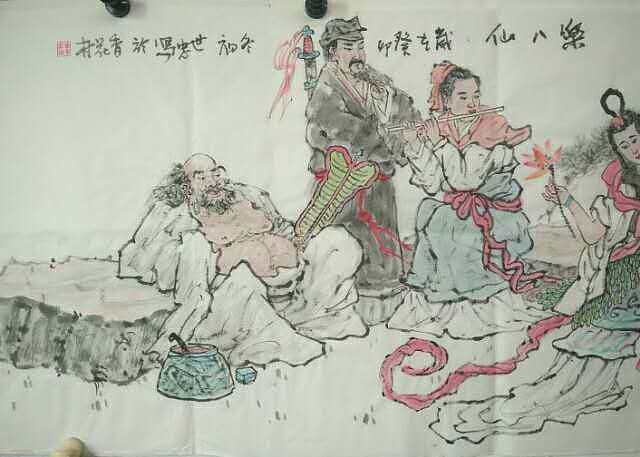 樂八仙 歲在癸卯冬初世忠寫於杏花村